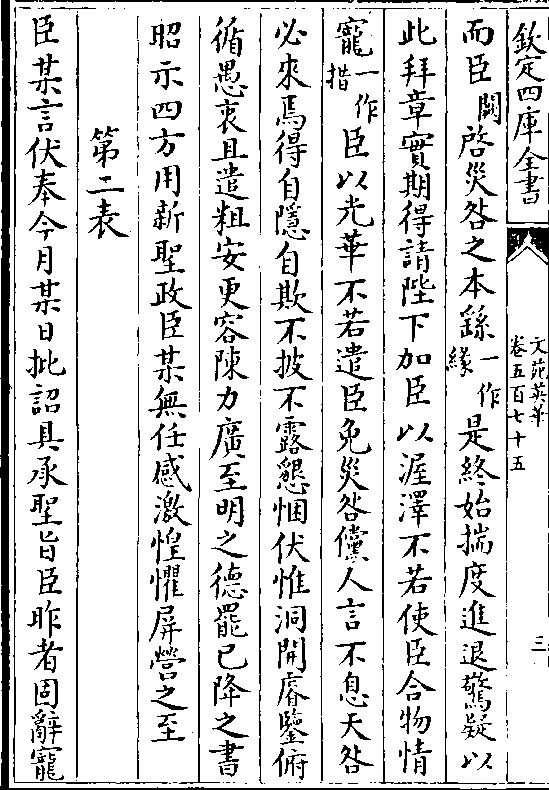 欽定四庫全書
文苑英華
卷五百七十五
三
而臣闕啓災咎之本繇一作緣是終始揣度進退驚疑以
此拜章實期得請陛下加臣以渥澤不若使臣合物情
寵一作措臣以光華不若遣臣免災咎儻人言不息天咎
必來焉得自隱自欺不披不露懇悃伏惟洞開睿鑒俯
循愚衷且遣粗安更容陳力廣至明之德罷已降之書
昭示四方用新聖政臣某無任感激惶懼屏營之至
第二表
臣某言伏奉今月某日批詔具承聖旨臣昨者固辭寵